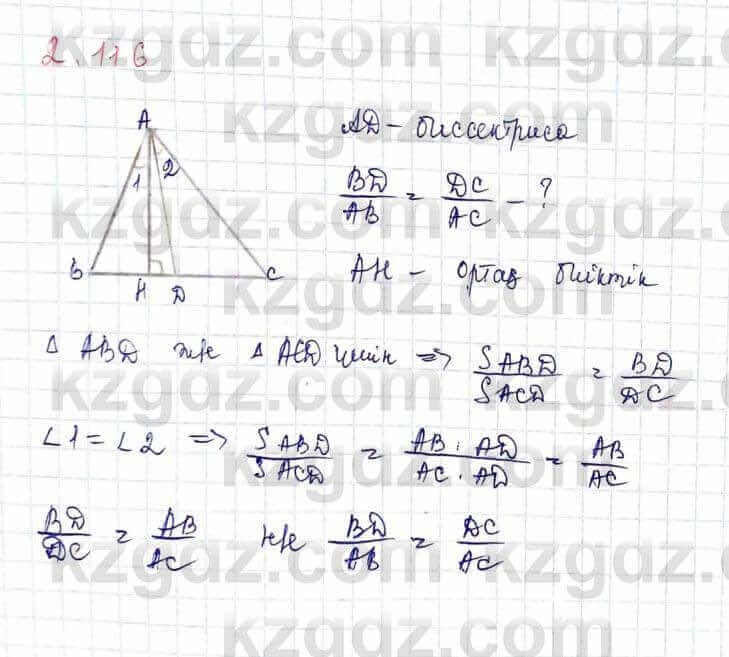 2.116
A
1 2
B H D C
AD – биссектриса
BD/AB = DC/AC – ?
AH – ортақ биіктік
Δ ABD және Δ ACD үшін => SABD/SACD = BD/DC
∠1 = ∠2 => SABD/SACD = AB · AD/AC · AD = AB/AC
BD/DC = AB/AC және BD/AB = DC/AC
kzgdz.com kzgdz.com
kzgdz.com
kzgdz.com kzgdz.com
kzgdz.com
kzgdz.com kzgdz.com
kzgdz.com
kzgdz.com kzgdz.com
kzgdz.com